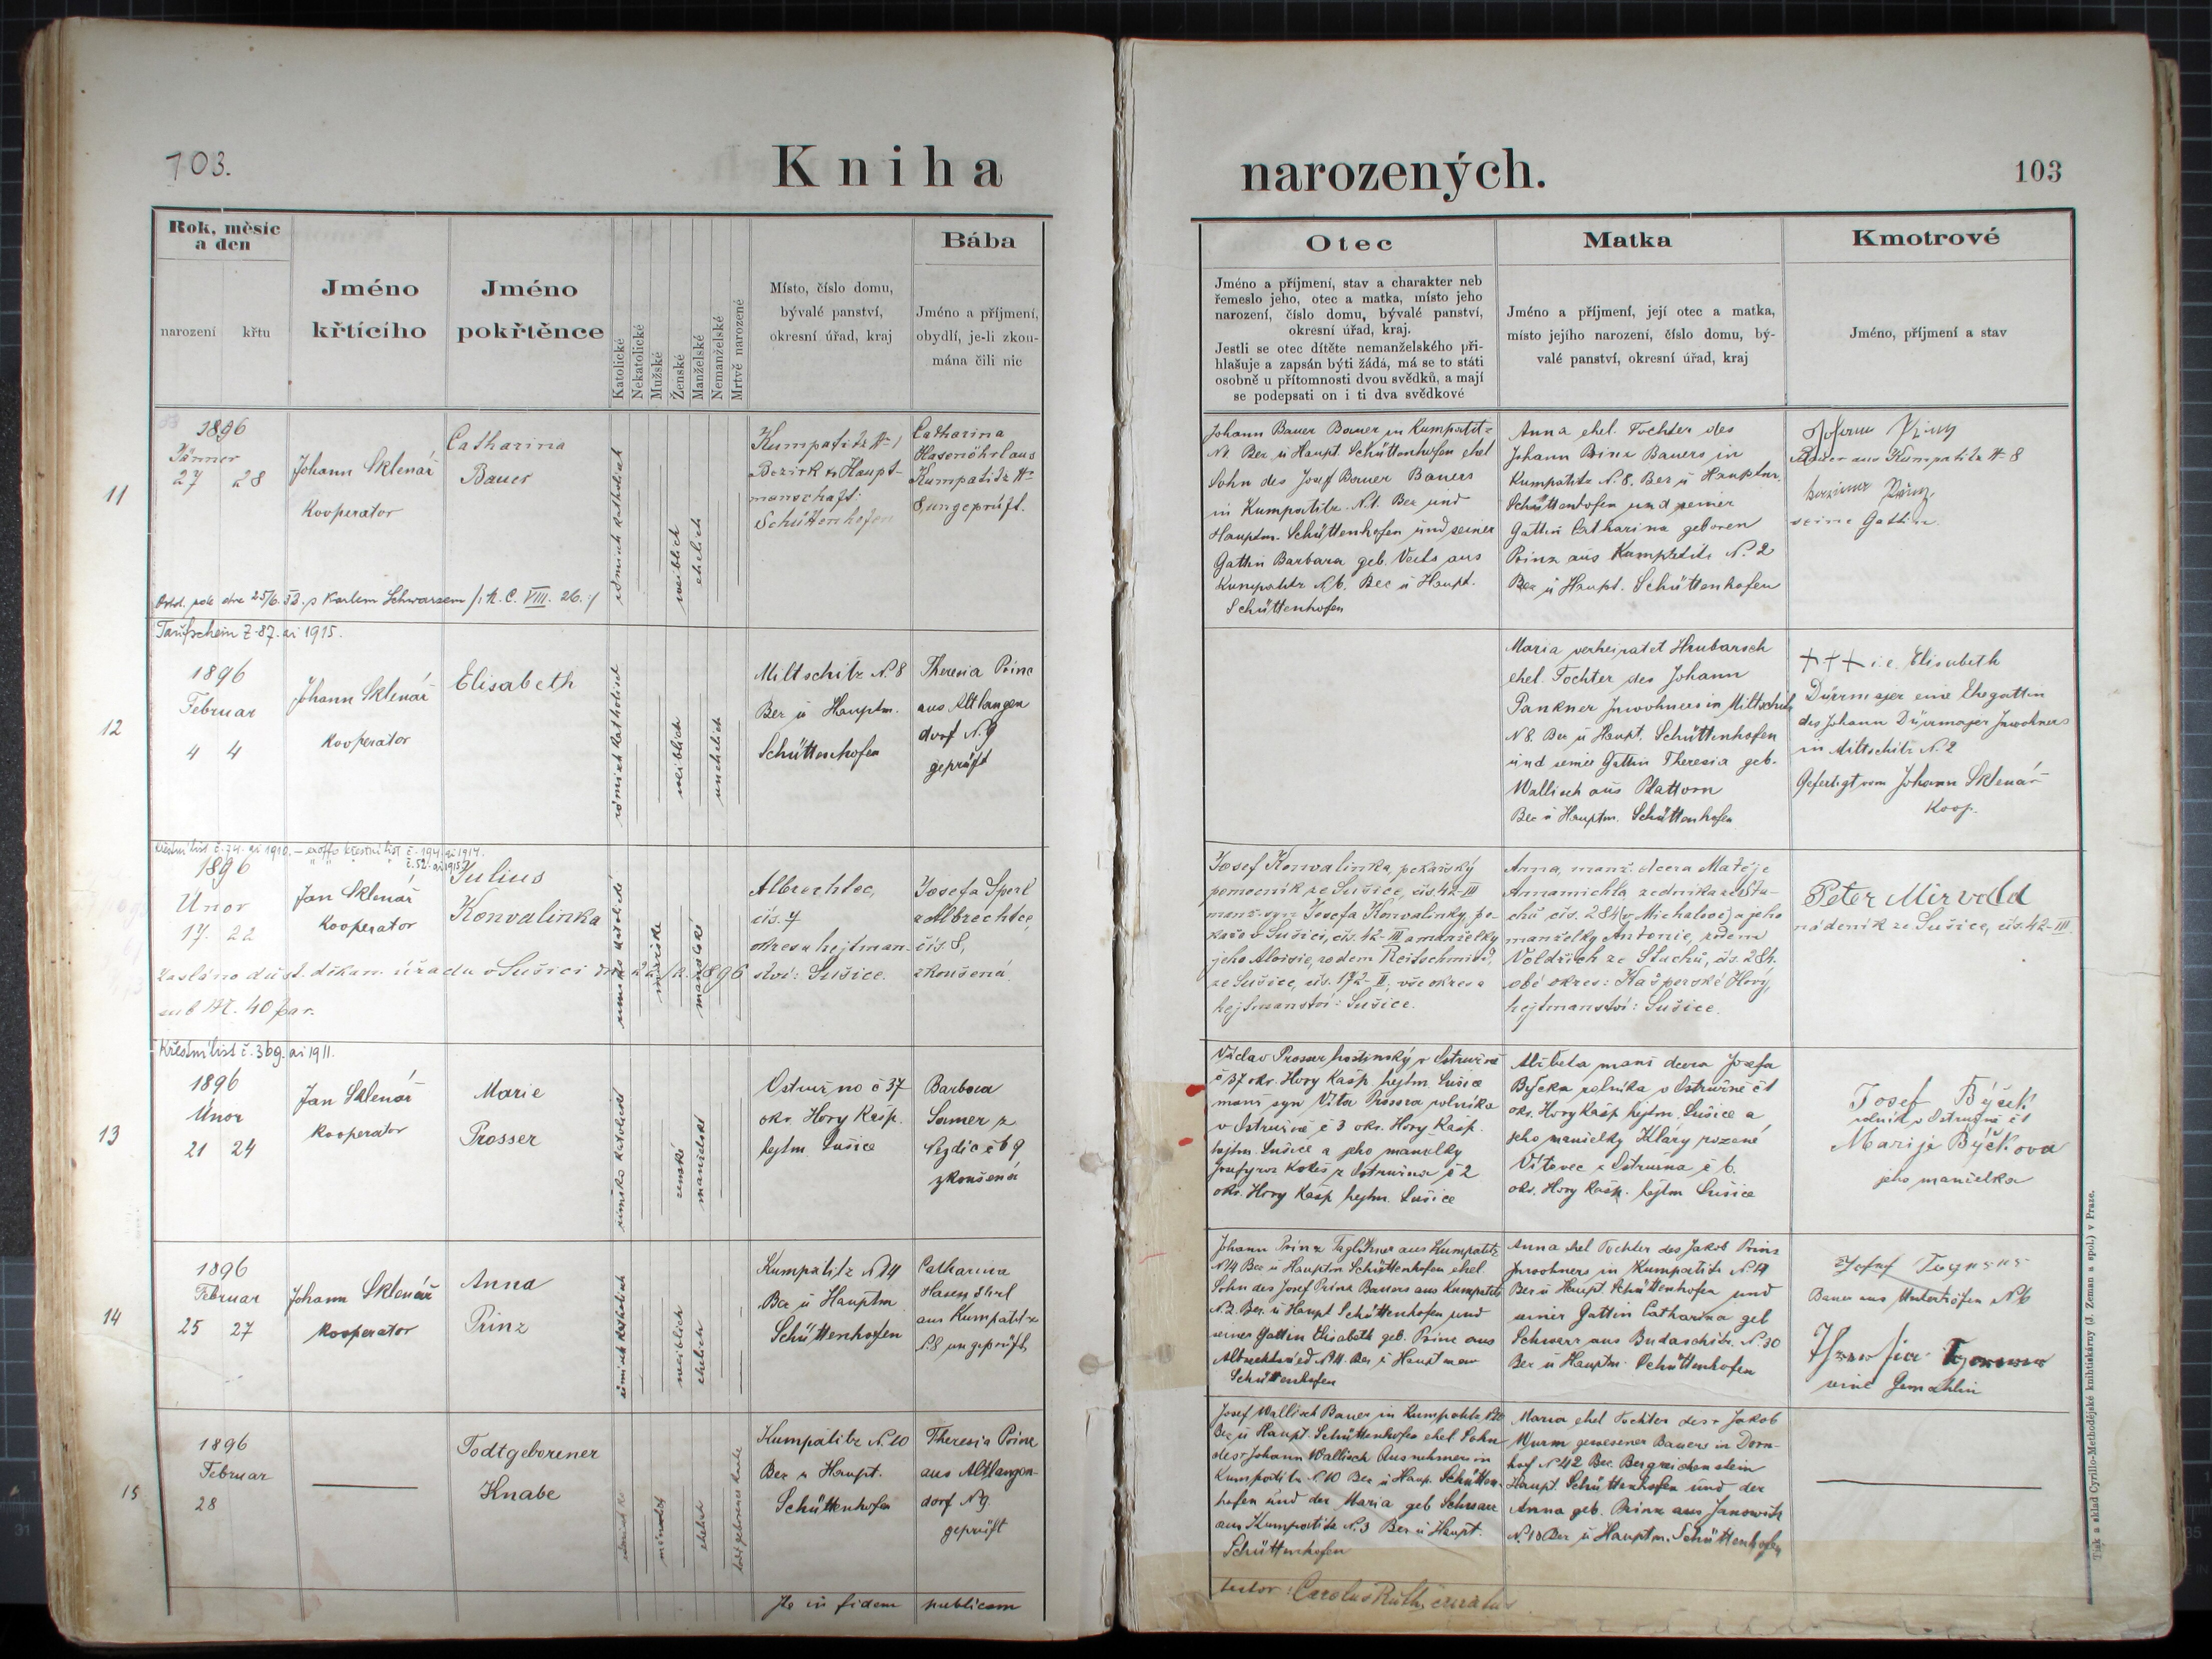 103.
Kniha
narozených.
103
Rok, měsíc
a den
narození
křtu
Jméno
křtícího
Jméno
pokřtěnce
Katolické
Nekatolické
Mužské
Ženské
Manželské
Nemanželské
Mrtvě narozené
Místo, číslo domu,
bývalé panství,
okresní úřad, kraj
Bába
Jméno a příjmení,
obydlí, je-li zkou-
mána čili nic
Otec
Jméno a příjmení, stav a charakter neb
řemeslo jeho, otec a matka, místo jeho
narození, číslo domu, bývalé panství,
okresní úřad, kraj.
Jestli se otec dítěte nemanželského při-
hlašuje a zapsán býti žádá, má se to státi
osobně u přítomnosti dvou svědků, a mají
se podepsati on i ti dva svědkové
Matka
Jméno a příjmení, její otec a matka,
místo jejího narození, číslo domu, bý-
valé panství, okresní úřad, kraj
Kmotrové
Jméno, příjmení a stav
11
1896
Jänner
27 28
Johann Sklenář
Kooperator
Catharina
Bauer
römisch katholisch
weiblich
ehelich
Kumpatitz N 1
Bezirk u Haupt-
manschaft:
Schüttenhofen
Catharina
Hasenöhrl aus
Kumpatitz N
8, ungeprüft.
Johann Bauer Bauer in Kumpatitz
N1 Bez. u Haupt. Schüttenhofen ehel
Sohn des Josef Bauer Bauers
in Kumpatitz N.1. Bez und
Hauptm. Schüttenhofen und seiner
Gattin Barbara geb. Veits aus
Kumpatitz N6. Bez u Haupt.
Schüttenhofen
Anna ehel. Tochter des
Johann Prinz Bauers in
Kumpatitz N.8. Bez u Hauptm.
Schüttenhofen und seiner
Gattin Catharina geboren
Prinz aus Kumpatitz N.2
Bez u Haupt. Schüttenhofen
Johann Prinz
Bauer aus Kumpatitz N 8
Prinz
seine Gattin.
dne 25/6. s Karlem Schwarzem /:K. C. VIII. 26.:/
12
Taufschein Z. 87. ai 1915.
1896
Februar
4 4
Johann Sklenář
Kooperator
Elisabeth
römisch katholisch
weiblich
unehelich
Miltschitz N.8
Bez u Hauptm.
Schüttenhofen
Theresia Prinz
aus Altlangen
dorf N.9
geprüft
Maria verheiratet Hrubarsch
ehel. Tochter des Johann
Pankner Inwohners in Miltschitz
N8. Bez u Haupt. Schüttenhofen
und seiner Gattin Theresia geb.
Wallisch aus Plattorn
Bez u Hauptm. Schüttenhofen
+++ i.e. Elisabeth
Dürrmajer eine Ehegattin
des Johann Dürrmajer Inwohners
in Miltschitz N.2
Gefertigt vom Johann Sklenář
Koop.
Křestní list č. 74. ai 1910. – exoffo křestní list č. 194. ai 1914.
č. 52. ai 1915
1896
Únor
17. 22
Jan Sklenář
Kooperator
Julius
Konvalinka
římsko katolické
mužské
manželské
Albrechtec,
čís. 7
okres a hejtman-
ství: Sušice.
Josefa Šperl
z Albrechtce,
čís. 8,
zkoušená.
Josef Konvalinka, pekařský
pomocník ze Sušice, čís. 42-III
manž. syn Josefa Konvalinky, pe-
kaře v Sušici, čís. 42-III a manželky
jeho Aloisie, rodem Reitschmied,
ze Sušice, čís. 172-II, vše okres a
hejtmanství: Sušice.
Anna, manž. dcera Matěje
Annamichla, zedníka ze Sta-
chů čís. 284 (v Michalově) a jeho
manželky Antonie, rodem
Voldřich ze Stachů, čís. 284.
obé okres: Kašperské Hory,
hejtmanství: Sušice.
Peter Mirvald
nádeník ze Sušice, čís. 42-III.
Zasláno důst. děkan. úřadu v Sušici dne 22/2. 1896
sub N. 40 par.
13
Křestní list č. 369. ai 1911.
1896
Únor
21 24
Jan Sklenář
Kooperator
Marie
Prosser
římsko katolické
ženské
manželské
Ostružno č 37
okr. Hory Kašp.
hejtm Sušice
Barbora
Somer z
č 69
zkoušená
Václav Prosser hostinský v Ostružně
č 37 okr. Hory Kašp. hejtm. Sušice
manž syn Víta Prossera rolníka
v Ostružně č 3 okr. Hory Kašp.
hejtm. Sušice a jeho manželky
Josefy roz Koteš z Ostružna č 2
okr. Hory Kašp hejtm. Sušice
Alžběta manž dcera Josefa
Býčka rolníka v Ostružně č 1
okr. Hory Kašp hejtm. Sušice a
jeho manželky Kláry rozené
Vítovec z Ostružna č 6.
okr. Hory Kašp. hejtm Sušice
Josef Býček
rolník v Ostružně č 1
Marije Býčkova
jeho manželka
14
1896
Februar
25 27
Johann Sklenář
Kooperator
Anna
Prinz
römisch katholisch
weiblich
ehelich
Kumpatitz N14
Bez u Hauptm
Schüttenhofen
Catharina
Hasenöhrl
aus Kumpatitz
N.8 ungeprüft
Johann Prinz Taglöhner aus Kumpatitz
N14 Bez u Hauptm Schüttenhofen ehel
Sohn des Josef Prinz Bauers aus Kumpatitz
N.2. Bez. u Haupt Schüttenhofen und
seiner Gattin Elisabeth geb. Prinz aus
Albrechtsried N11. Bez u Hauptman
Schüttenhofen
Anna ehel Tochter des Jakob Prinz
Inwohners in Kumpatitz N.14
Bez u Haupt. Schüttenhofen und
seiner Gattin Catharina geb
Schwarz aus Budaschitz. N.30
Bez u Hauptm. Schüttenhofen
Josef
Bauer aus Unterkörfen N6
seine Gemahlin
15
1896
Februar
28
Todtgeborener
Knabe
männlich
ehelich
todtgeborener Knabe
Kumpatitz N.10
Bez u Haupt.
Schüttenhofen
Theresia Prinz
aus Altlangen-
dorf N9.
geprüft
Josef Wallisch Bauer in Kumpatitz N10
Bez u Haupt. Schüttenhofen ehel Sohn
des + Johann Wallisch Ausnehmer in
Kumpatitz N.10 Bez u Haup. Schütten-
hofen und der Maria geb Schwarz
aus Kumpatitz N.3 Bez u Haupt.
Schüttenhofen
Maria ehel Tochter des + Jakob
Wurm gewesener Bauers in Dorn-
hof N42 Bez. Bergreichenstein
Haupt Schüttenhofen und der
Anna geb. Prinz aus Janowitz
N.10 Bez u Hauptm. Schüttenhofen
Ita in fidem publicam
testor: Carolus Růth, curatus
Tisk a sklad Cyrillo-Methodějské knihtiskárny (J. Zeman a spol.) v Praze.